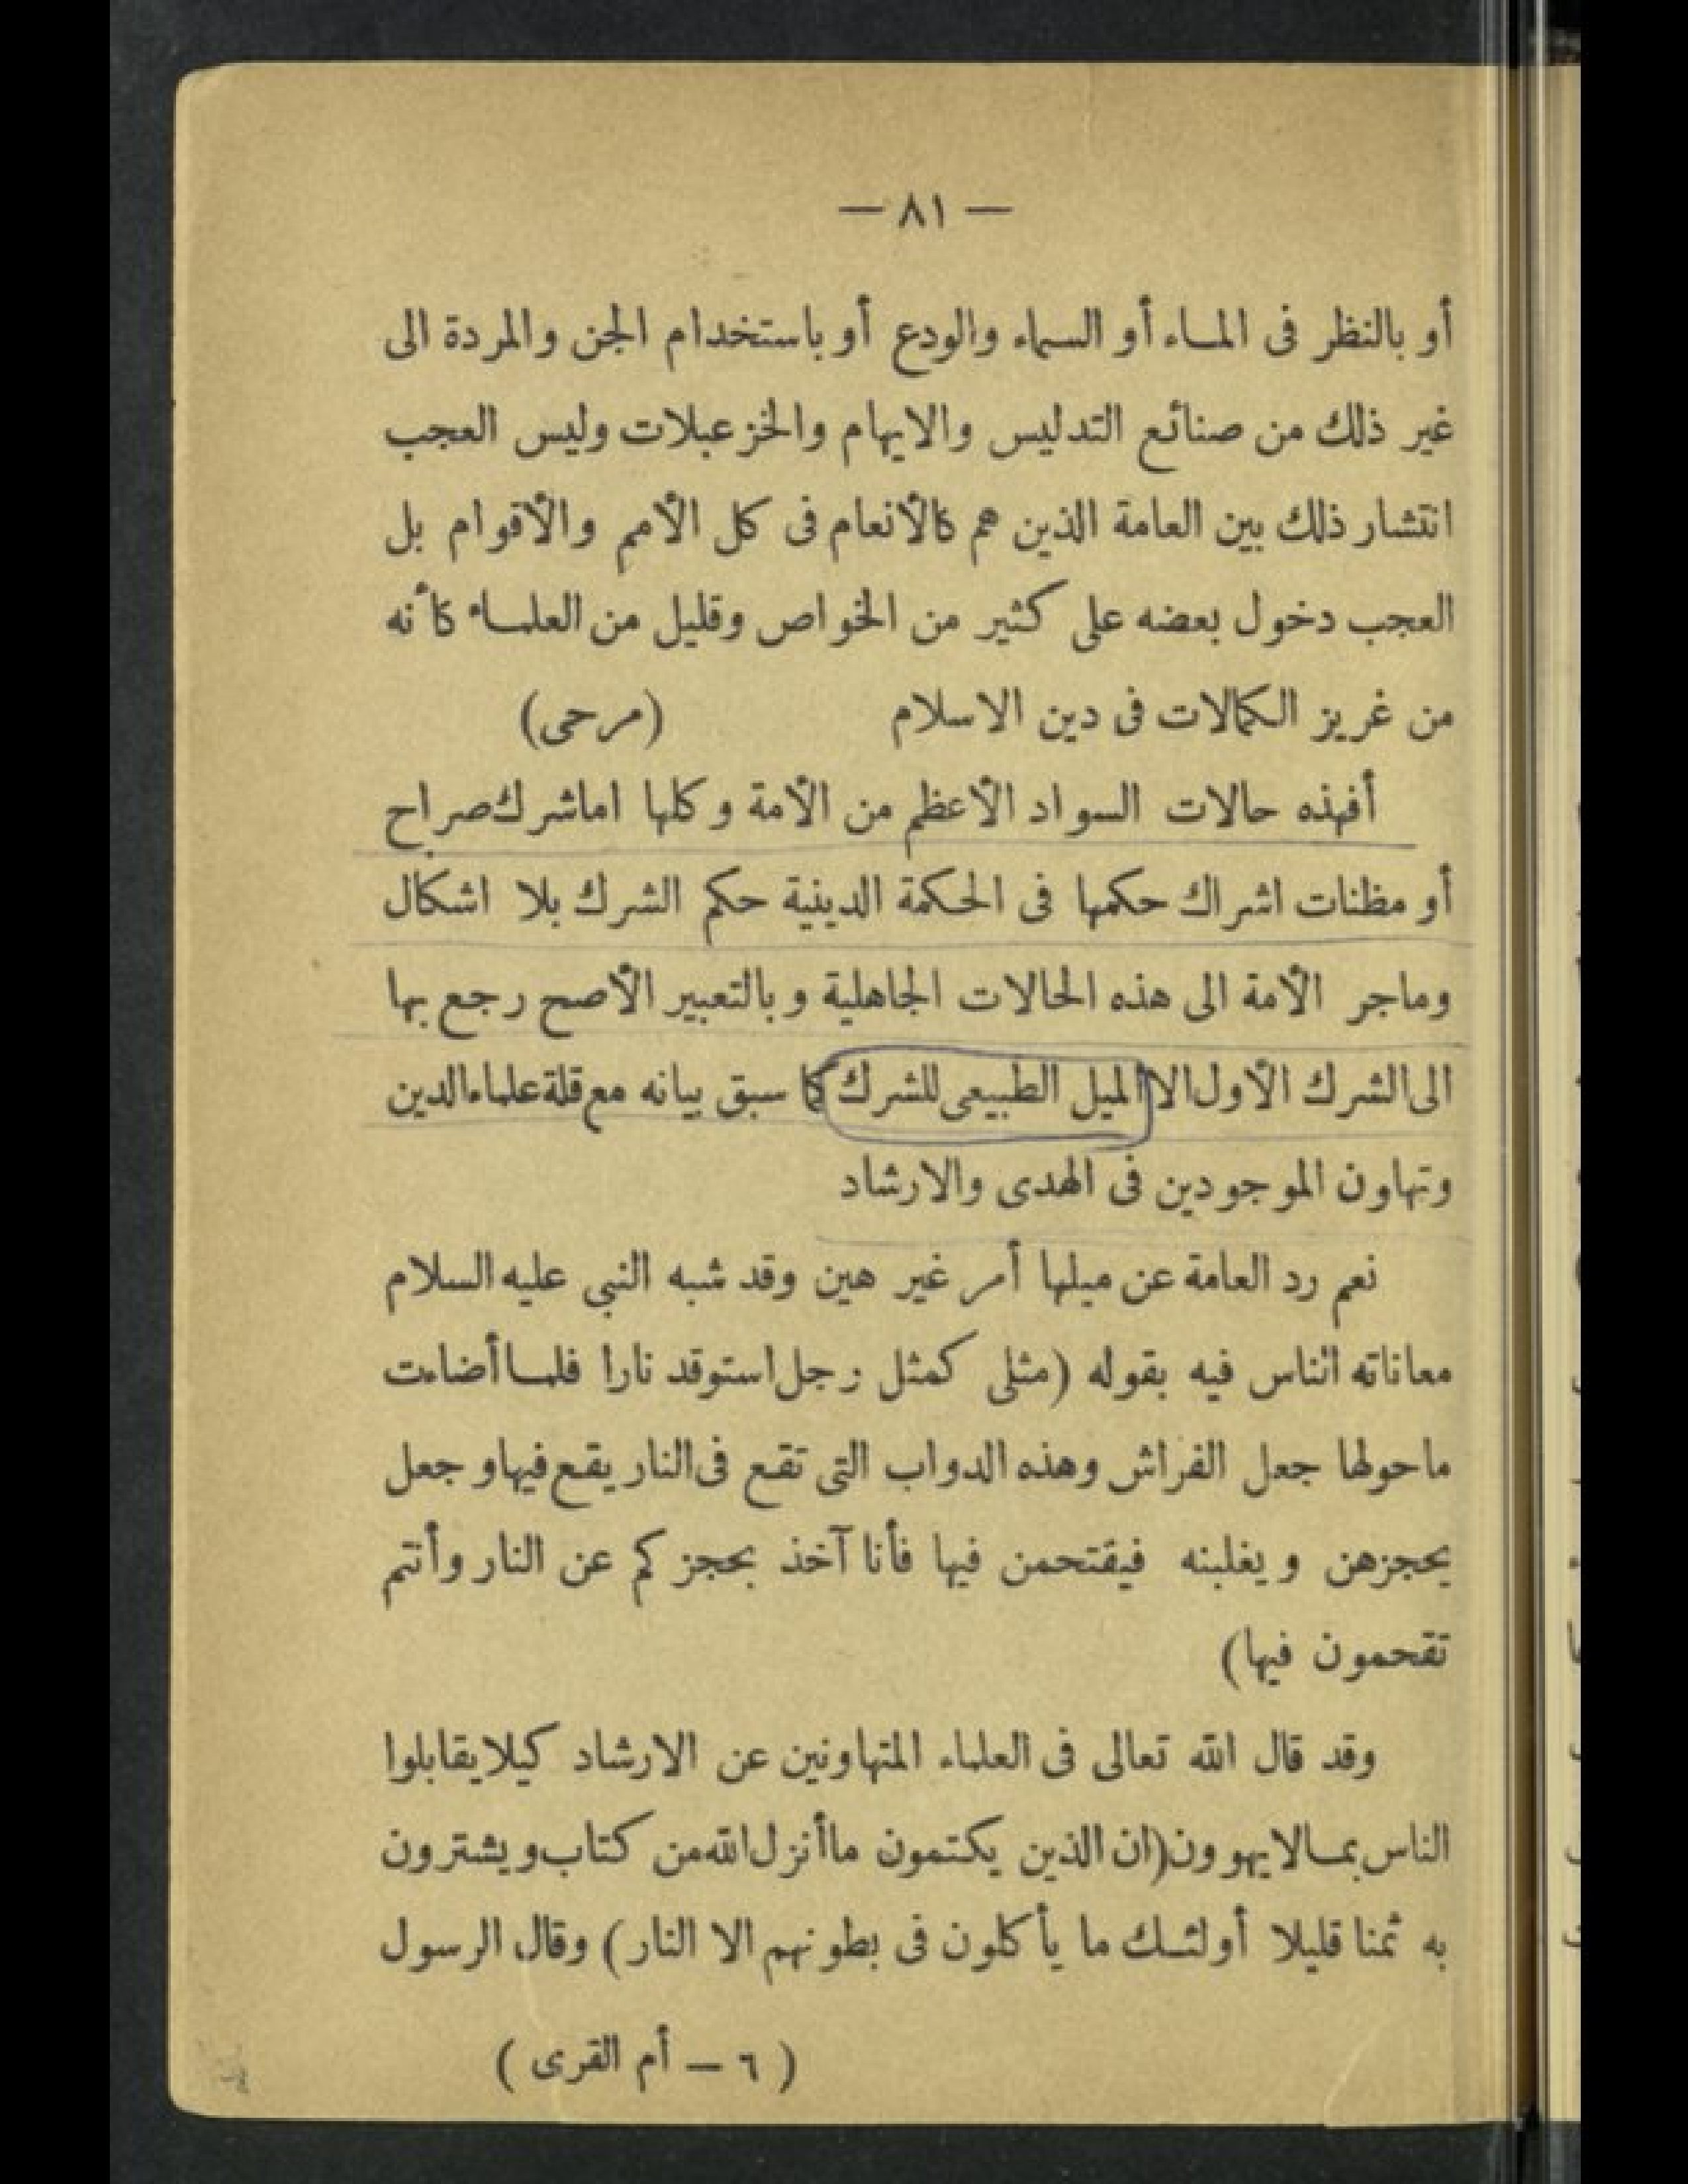 — ٨١ —
أو بالنظر فى الماء أو السماء والودع أو باستخدام الجن والمردة الى
غير ذلك من صنائع التدليس والايهام والخزعبلات وليس العجب
انتشار ذلك بين العامة الذين هم كالأنعام فى كل الأمم والأقوام بل
العجب دخول بعضه على كثير من الخواص وقليل من العلماء كأنه
من غريز الكمالات فى دين الاسلام (مرحى)
أفهذه حالات السواد الأعظم من الأمة وكلها اما شرك صراح
أو مظنات اشراك حكمها فى الحكمة الدينية حكم الشرك بلا اشكال
وماجر الأمة الى هذه الحالات الجاهلية وبالتعبير الأصح رجع بها
الى الشرك الأول الا الميل الطبيعى للشرك كما سبق بيانه مع قلة علماء الدين
وتهاون الموجودين فى الهدى والارشاد
نعم رد العامة عن ميلها أمر غير هين وقد شبه النبى عليه السلام
معاناته الناس فيه بقوله (مثلى كمثل رجل استوقد نارا فلما أضاءت
ماحولها جعل الفراش وهذه الدواب التى تقع فى النار يقع فيها وجعل
يحجزهن ويغلبنه فيقتحمن فيها فأنا آخذ بحجزكم عن النار وأنتم
تقحمون فيها)
وقد قال الله تعالى فى العلماء المتهاونين عن الارشاد كيلا يقابلوا
الناس بمالايهوون (ان الذين يكتمون ما أنزل الله من كتاب ويشترون
به ثمنا قليلا أولئك ما يأكلون فى بطونهم الا النار) وقال الرسول
( ٦ — أم القرى )